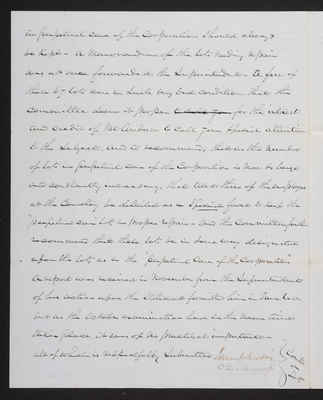 in perpetual care of the Corporation should always
be kept - A memorandum of the lots needing repair
was at once forwarded to the Superintendent - A few of
these 67 lots were in such very bad condition that the
Committee deem it proper for the interest
and credit of Mt Auburn to call your special attention
to the subject, and to recommend, that as the number
of lots in perpetual care of the Corporation is now so large
and constantly increasing, that two or three of the employes
at the Cemetery be detailed as a special force to keep the
perpetual care lots in proper repair - and the Committee further
recommend that these lots be in some way designated
upon the lot, as in the "perpetual care of the Corporation"
A report was received in November from the Superintendent
of his action upon the
but as the October examination
taken place it seems of no practical importance -
all of which is respectfully submitted
Committee
on
Lots